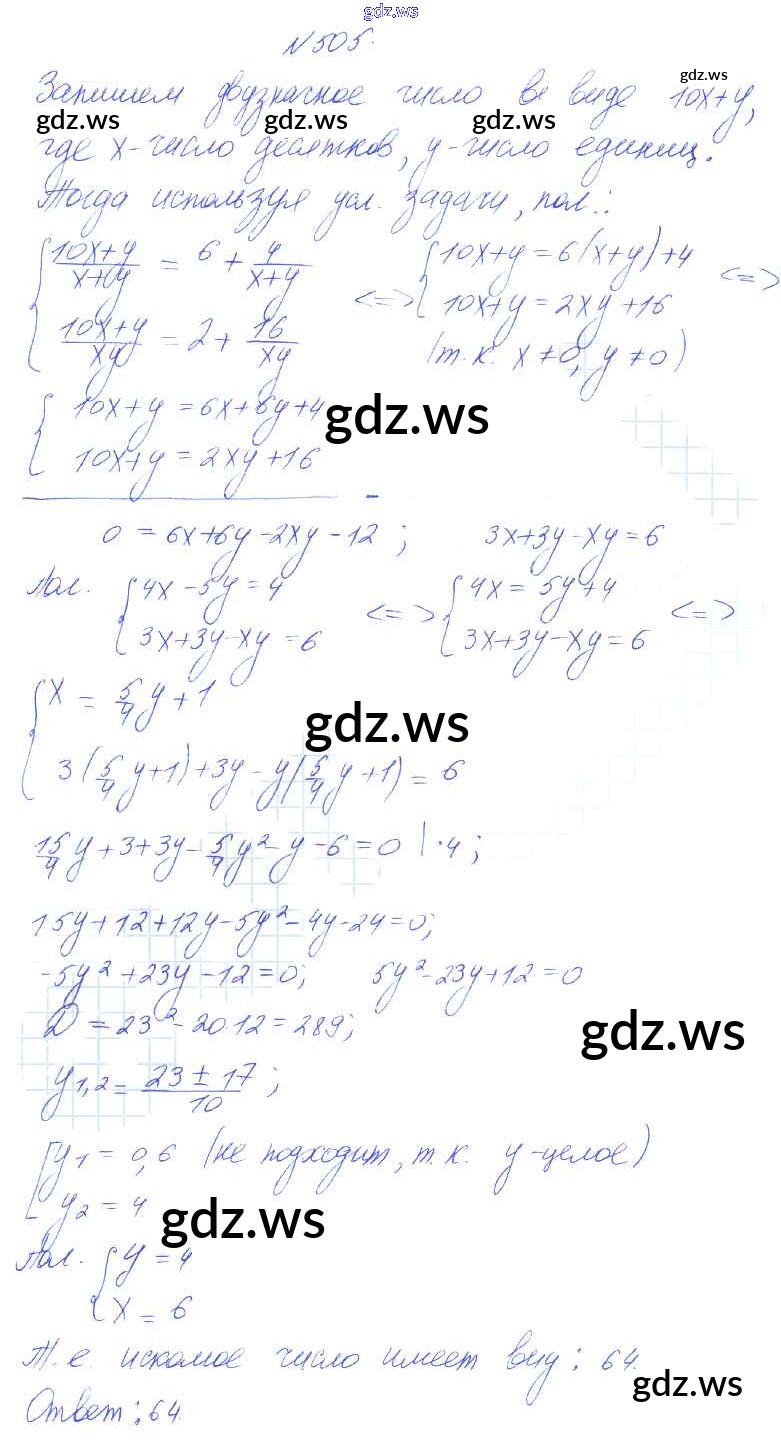 gdz.ws
N 505.
gdz.ws
Запишем двузначное число в виде 10x+y,
gdz.ws gdz.ws gdz.ws
где x-число десятков, y-число единиц.
Тогда используя усл. задачи, пол.:
{ (10x+y)/(x+y) = 6 + 4/(x+y) <=> { 10x+y = 6(x+y)+4 <=>
(10x+y)/(xy) = 2 + 16/(xy) 10x+y = 2xy+16
(т.к. x≠0, y≠0)
{ 10x+y = 6x+6y+4 gdz.ws
10x+y = 2xy+16
-
0 = 6x+6y-2xy-12 ; 3x+3y-xy=6
Пол. { 4x-5y=4 <=> { 4x = 5y+4 <=>
3x+3y-xy=6 3x+3y-xy=6
{ x = 5/4 y + 1
gdz.ws
3(5/4 y+1)+3y-y(5/4 y+1) = 6
15/4 y+3+3y-5/4 y²-y-6=0 |·4;
15y+12+12y-5y²-4y-24=0;
-5y²+23y-12=0; 5y²-23y+12=0
D = 23²-20·12=289;
gdz.ws
y1,2 = (23±17)/10 ;
[ y1 = 0,6 (не подходит, т.к. y-целое)
y2 = 4
gdz.ws
Пол. { y = 4
x = 6
Т.е. искомое число имеет вид: 64.
gdz.ws
Ответ: 64.